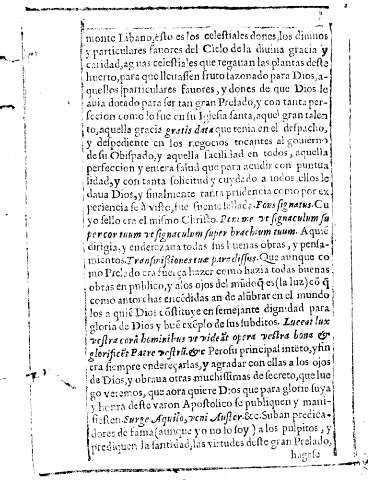 monte Libano, esto es los celestiales dones, los diuinos
y particulares fauores del Cielo de la diuina gracia y
caridad, aguas celestiales que regauan las plantas deste
huerto, para que lleuassen fruto sazonado para Dios, a-
quellos particulares fauores, y dones de que Dios le
auia dotado para ser tan gran Prelado, y con tanta per-
feccion como lo fue en su Iglesia santa, aquel gran talen
to, aquella gracia gratis data que tenia en el despacho,
y despediente en los negocios tocantes al gouierno
de su Obispado, y aquella facilidad en todos, aquella
perfeccion y entera salud para acudir con puntua
lidad, y con tanta solicitud y cuydado a todos ellos le
daua Dios, y finalmente tanta prudencia como por ex
periencia se à visto, fue fuente sellada. Fons signatus. Cu
yo sello era el mismo Christo. Pone me vt signaculum su
per cor tuum vt signaculum super brachium tuum. A quiẽ
dirigia, y endereçaua todas sus buenas obras, y pensa-
mientos. Emissiones tuæ paradissus. Que aunque co
mo Prelado era fuerça hazer como hazia todas buenas
obras en publico, y a los ojos del mũdo q̃ es (la luz) cõ q̃
como antorchas encẽdidas an de alũbrar en el mundo
los a quiẽ Dios cõstituye en semejante dignidad para
gloria de Dios y buẽ exẽplo de sus subditos. Luceat lux
vestra corã hominibus vt videãt opera vestra bona &
glorificẽt Patrẽ vestrũ. &c Pero su principal intẽto, y fin
era siempre endereçarlas, y agradar con ellas a los ojos
de Dios, y obraua otras muchissimas de secreto, que lue
go veremos, que aora quiere Dios que para gloria suya
y honra deste varon Apostolico se publiquen y mani-
fiesten. Surge Aquilo, veni Auster &c. Suban predica-
dores de fama (aunque yo no lo soy) a los pulpitos, y
prediquen la santidad, las virtudes deste gran Prelado,
hagase